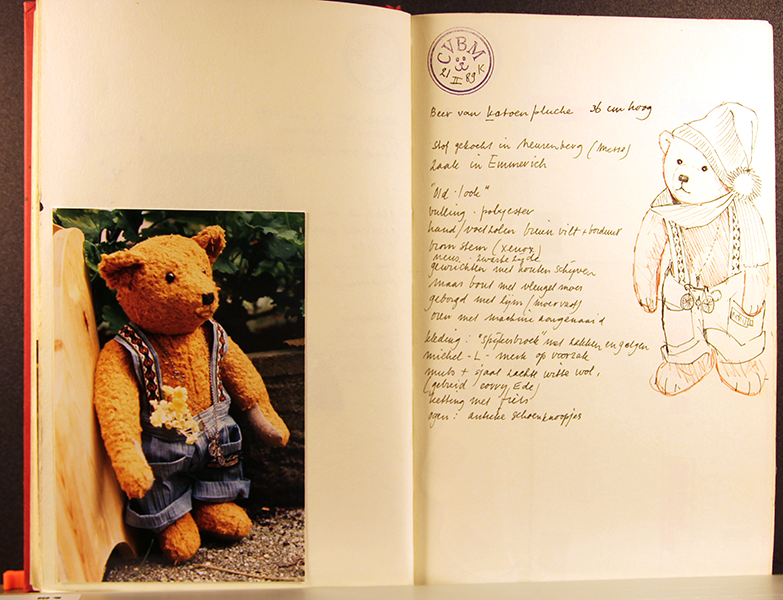 CVBM
21 II 89 K
Beer van katoen pluche 36 cm hoog
stof gekocht in Neurenberg (Messe)
zaak in Emmerich
"Old-look"
vulling - polyester
hand/voetzolen bruin vilt + borduur
brom stem (xerox)
neus: zwarte zijde
gewrichten met houten schijven
maar bout met vleugelmoer
geborgd met lijm (moervast)
oren met machine aangenaaid
kleding: "spijkerbroek" met zakken en galgen
michel - L - merk op voorzak
muts + sjaal zachte witte wol,
(gebreid / corry, Ede)
ketting met fiets
ogen: antieke schoenknoopjes